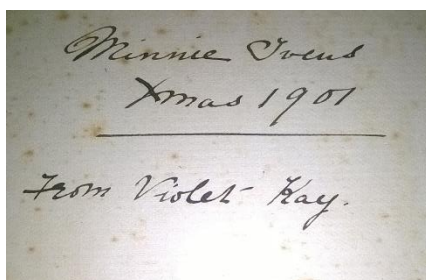 Minnie Ivens
Xmas 1901
From Violet Kay.